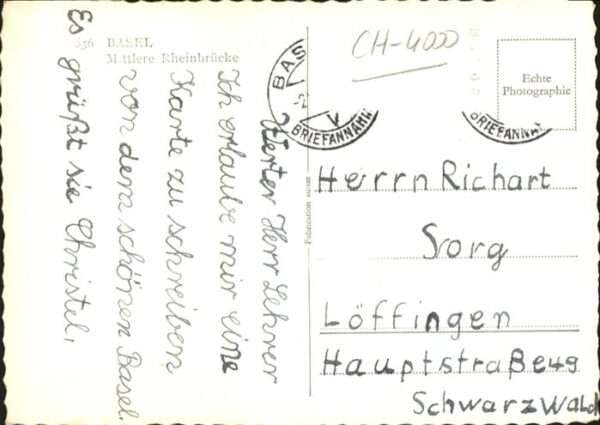 656 BASEL
Mittlere Rheinbrücke
Werter Herr Lehrer
Ich erlaube mir eine
Karte zu schreiben
von dem schönen Basel.
Es grüßt sie Christel.
BAS
BRIEFANNAHM
CH-4000
BRIEFANNA
Echte
Photographie
Herrn Richart
Sorg
Löffingen
Hauptstraße 49
Schwarzwald